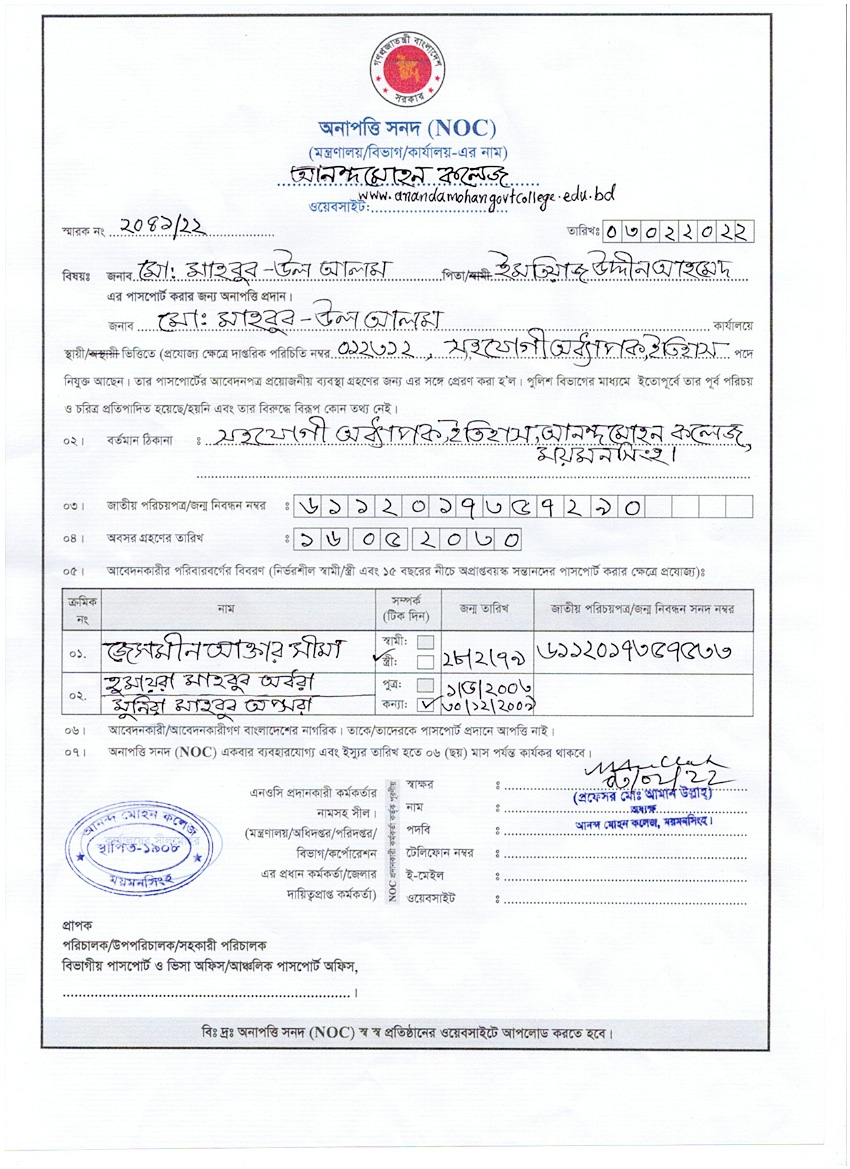 গণপ্রজাতন্ত্রী বাংলাদেশ
সরকার
অনাপত্তি সনদ (NOC)
(মন্ত্রণালয়/বিভাগ/কার্যালয়-এর নাম)
আনন্দ মোহন কলেজ
www.anandamohangovtcollege.edu.bd
ওয়েবসাইট:
স্মারক নং ২০৪৯/২২ তারিখঃ ০৩০২২০২২
বিষয়ঃ জনাব মোঃ মাহবুব-উল আলম পিতা/স্বামী ইমতিয়াজ উদ্দীন আহমেদ
এর পাসপোর্ট করার জন্য অনাপত্তি প্রদান।
জনাব মোঃ মাহবুব-উল আলম কার্যালয়ে
স্থায়ী/অস্থায়ী ভিত্তিতে (প্রযোজ্য ক্ষেত্রে দাপ্তরিক পরিচিতি নম্বর ০১২৩১২, সহযোগী অধ্যাপক, ইতিহাস পদে
নিযুক্ত আছেন। তার পাসপোর্টের আবেদনপত্র প্রয়োজনীয় ব্যবস্থা গ্রহণের জন্য এর সঙ্গে প্রেরণ করা হ'ল। পুলিশ বিভাগের মাধ্যমে ইতোপূর্বে তার পূর্ব পরিচয়
ও চরিত্র প্রতিপাদিত হয়েছে/হয়নি এবং তার বিরুদ্ধে বিরূপ কোন তথ্য নেই।
০২। বর্তমান ঠিকানা : সহযোগী অধ্যাপক, ইতিহাস, আনন্দ মোহন কলেজ,
ময়মনসিংহ।
০৩। জাতীয় পরিচয়পত্র/জন্ম নিবন্ধন নম্বর : ৬১১২০১৭৩৫৭২৯০
০৪। অবসর গ্রহণের তারিখ : ১৬ ০৫ ২০৩০
০৫। আবেদনকারীর পরিবারবর্গের বিবরণ (নির্ভরশীল স্বামী/স্ত্রী এবং ১৫ বছরের নীচে অপ্রাপ্তবয়স্ক সন্তানদের পাসপোর্ট করার ক্ষেত্রে প্রযোজ্য)ঃ
ক্রমিক নং নাম সম্পর্ক (টিক দিন) জন্ম তারিখ জাতীয় পরিচয়পত্র/জন্ম নিবন্ধন সনদ নম্বর
০১. জেসমীন আক্তার সীমা স্বামী: স্ত্রী: ✓ ২৮/২/৭৯ ৬১১২০১৭৩৫৭৫৩৩
০২. হুমায়রা মাহবুব অর্বরা পুত্র:
মুনিরা মাহবুব অপ্সরা কন্যা: ✓ ৩০/১২/২০০৯
০৬। আবেদনকারী/আবেদনকারীগণ বাংলাদেশের নাগরিক। তাকে/তাদেরকে পাসপোর্ট প্রদানে আপত্তি নাই।
০৭। অনাপত্তি সনদ (NOC) একবার ব্যবহারযোগ্য এবং ইস্যুর তারিখ হতে ০৬ (ছয়) মাস পর্যন্ত কার্যকর থাকবে।
০৩/০২/২২
এনওসি প্রদানকারী কর্মকর্তার
নামসহ সীল।
(মন্ত্রণালয়/অধিদপ্তর/পরিদপ্তর/
বিভাগ/কর্পোরেশন
এর প্রধান কর্মকর্তা/জেলার
দায়িত্বপ্রাপ্ত কর্মকর্তা)
NOC প্রদানকারী কর্মকর্তা কর্তৃক পূরণীয়
স্বাক্ষর :
নাম : (প্রফেসর মোঃ আমান উল্লাহ)
অধ্যক্ষ
পদবি : আনন্দ মোহন কলেজ, ময়মনসিংহ।
টেলিফোন নম্বর :
ই-মেইল :
ওয়েবসাইট :
আনন্দ মোহন কলেজ
স্থাপিত-১৯০৮
ময়মনসিংহ
প্রাপক
পরিচালক/উপপরিচালক/সহকারী পরিচালক
বিভাগীয় পাসপোর্ট ও ভিসা অফিস/আঞ্চলিক পাসপোর্ট অফিস,
বিঃ দ্রঃ অনাপত্তি সনদ (NOC) স্ব স্ব প্রতিষ্ঠানের ওয়েবসাইটে আপলোড করতে হবে।